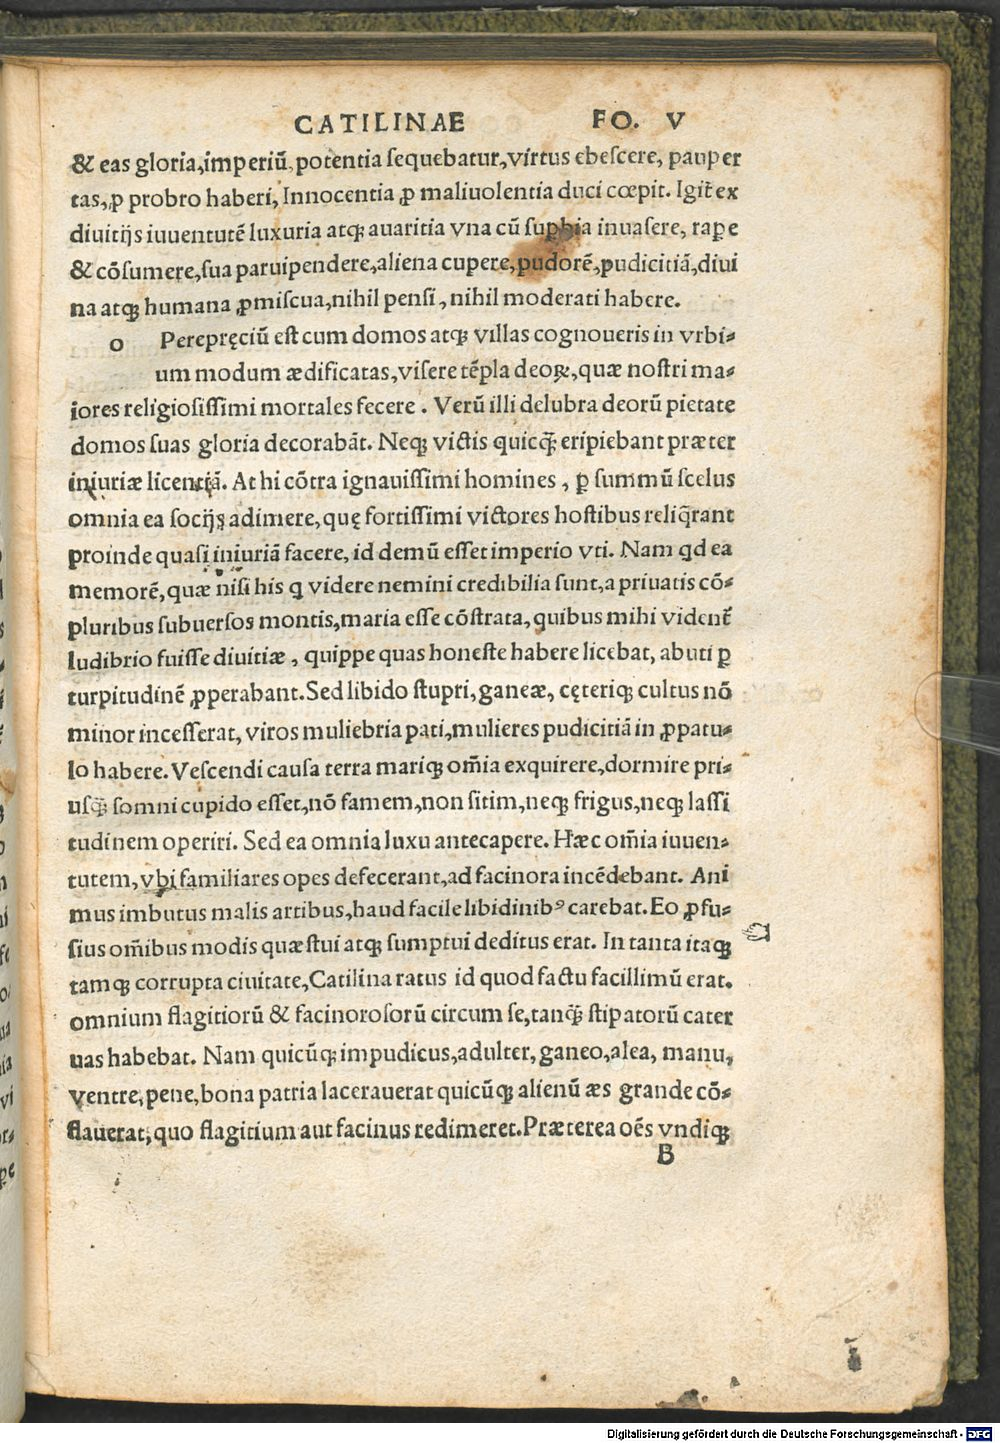 CATILINAE FO. V
& eas gloria,imperiũ,potentia ſequebatur,virtus ebeſcere, pauper
tas,ꝓ probro haberi, Innocentia ꝓ maliuolentia duci cœpit. Igit̃ ex
diuitijs iuuentutẽ luxuria atqꝫ auaritia vna cũ ſuꝑbia inuaſere, raꝑe
& cõſumere,ſua paruipendere,aliena cupere,pudorẽ,pudicitiã,diui
na atqꝫ humana ꝓmiſcua,nihil penſi, nihil moderati habere.
o Perepręciũ eſt cum domos atqꝫ villas cognoueris in vrbi⸗
um modum ædificatas,viſere tẽpla deoꝝ,quæ noſtri ma⸗
iores religioſiſſimi mortales fecere. Verũ illi delubra deorũ pietate
domos ſuas gloria decorabãt. Neqꝫ victis quicq̃ꝫ eripiebant præter
iniuriæ licentiã. At hi cõtra ignauiſſimi homines, ꝑ ſummũ ſcelus
omnia ea ſocijs adimere,quę fortiſſimi victores hoſtibus reliq̃rant
proinde quaſi iniuriã facere, id demũ eſſet imperio vti. Nam qd ea
memorẽ,quæ niſi his q videre nemini credibilia ſunt,a priuatis cõ⸗
pluribus ſubuerſos montis,maria eſſe cõſtrata,quibus mihi vident̃
ludibrio fuiſſe diuitiæ, quippe quas honeſte habere licebat, abuti ꝑ
turpitudinẽ ꝓperabant.Sed libido ſtupri,ganeæ, cęteriqꝫ cultus nõ
minor inceſſerat, viros muliebria pati,mulieres pudicitiã in ꝓpatu⸗
lo habere.Veſcendi cauſa terra mariqꝫ om̃ia exquirere,dormire pri⸗
uſq̃ꝫ ſomni cupido eſſet,nõ famem,non ſitim,neqꝫ frigus,neqꝫ laſſi
tudinem operiri. Sed ea omnia luxu antecapere. Hæc om̃ia iuuen⸗
tutem,vbi familiares opes defecerant,ad facinora incẽdebant. Ani
mus imbutus malis artibus,haud facile libidinibꝰ carebat.Eo ꝓfu⸗
ſius om̃ibus modis quæſtui atqꝫ ſumptui deditus erat. In tanta itaqꝫ
tamqꝫ corrupta ciuitate,Catilina ratus id quod factu facillimũ erat.
omnium flagitiorũ & facinoroſorũ circum ſe,tanq̃ꝫ ſtipatorũ cater
uas habebat. Nam quicũqꝫ impudicus,adulter,ganeo,alea, manu,
ventre,pene,bona patria lacerauerat quicũqꝫ alienũ æs grande cõ⸗
flauerat,quo flagitium aut facinus redimeret.Præterea oẽs vndiqꝫ
B
Digitalisierung gefördert durch die Deutsche Forschungsgemeinschaft - DFG